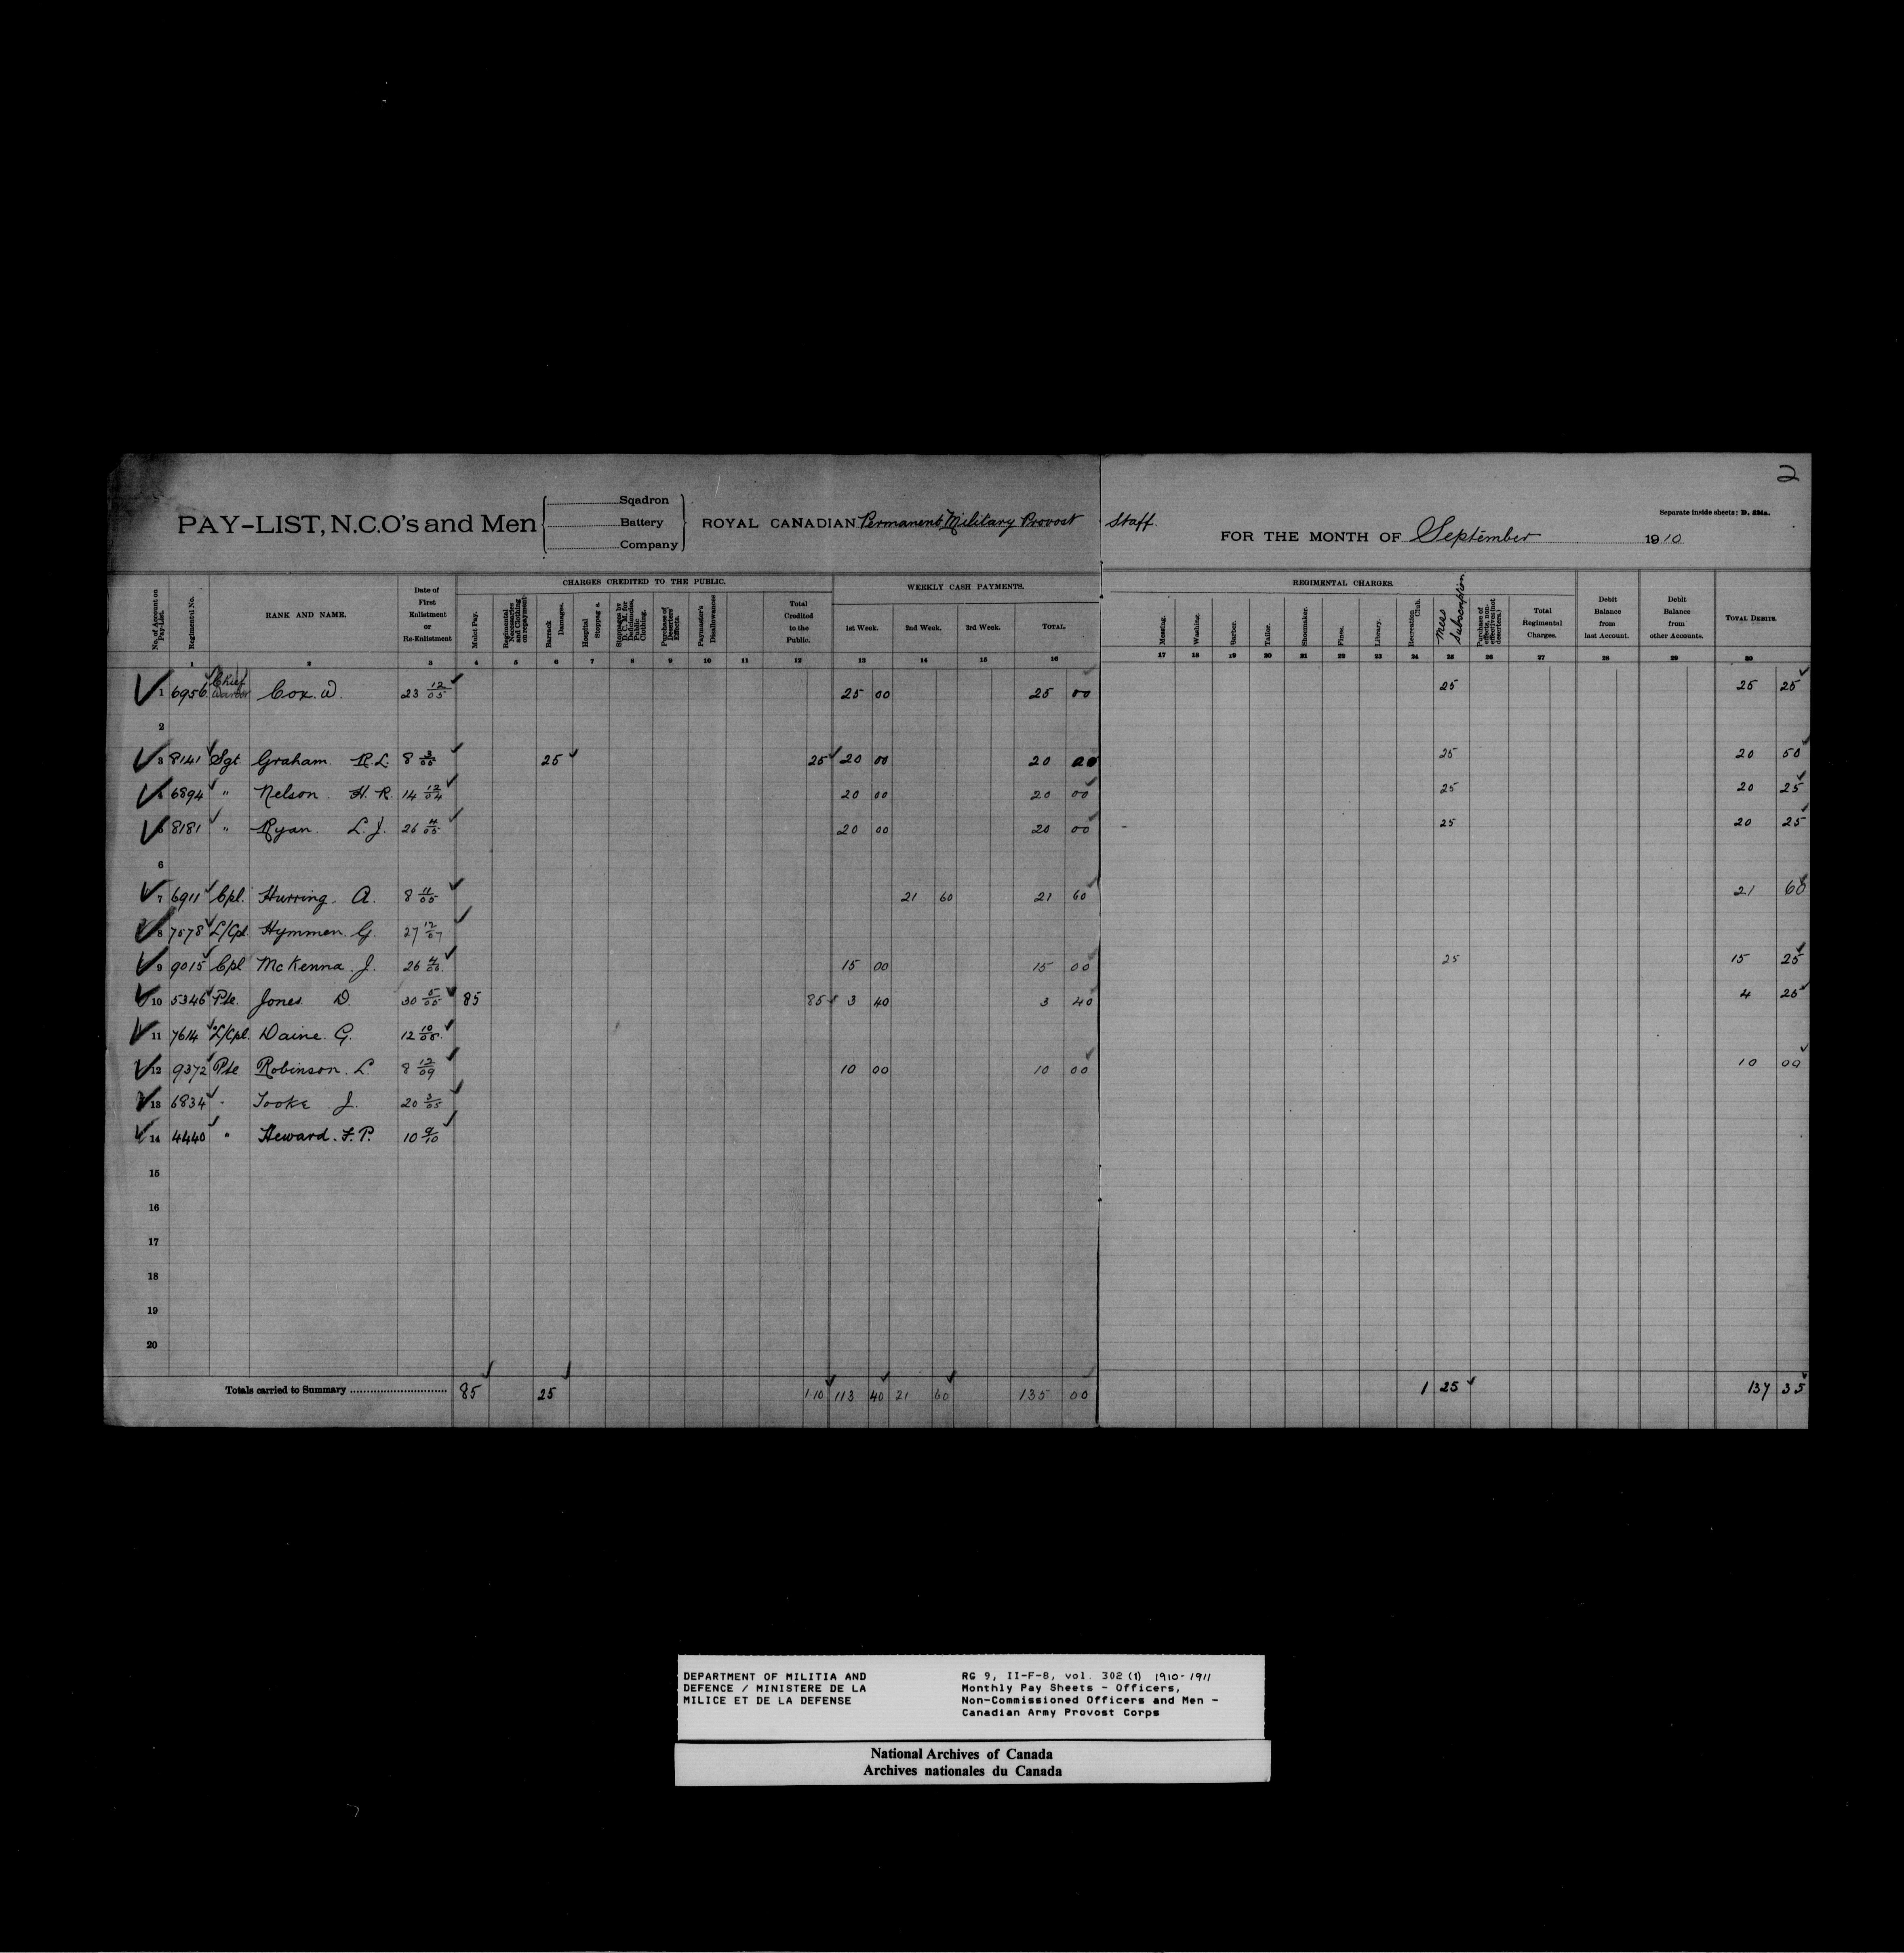 2
PAY-LIST, N.C.O's and Men
Sqadron
Battery
Company
ROYAL CANADIAN Permanent Military Provost Staff.
Separate inside sheets: D.
FOR THE MONTH OF September 1910
CHARGES CREDITED TO THE PUBLIC. WEEKLY CASH PAYMENTS. REGIMENTAL CHARGES.
No. of Account on Pay-List. Regimental No. RANK AND NAME. Date of First Enlistment or Re-Enlistment Mulct Pay. Regimental Necessaries and Clothing on repayment Barrack Damages. Hospital Stoppages. Stoppages by D. C. M. for Deficiencies, Public Clothing. Purchase of Deserters' Effects. Paymaster's Disallowances Total Credited to the Public. 1st Week. 2nd Week. 3rd Week. TOTAL. Messing. Washing. Barber. Tailor. Shoemaker. Fines. Library. Recreation Club. Mess Subscription Purchase of effects, non-effectives (not deserters.) Total Regimental Charges. Debit Balance from last Account. Debit Balance from other Accounts. TOTAL DEBITS.
1 2 3 4 5 6 7 8 9 10 11 12 13 14 15 16 17 18 19 20 21 22 23 24 25 26 27 28 29 30
1 6956 Chief Warder Cox. W. 23 12/05 25 00 25 00 25 25 25
2
3 8141 Sgt Graham. R.L. 8 3/05 25 25 20 00 20 00 25 20 50
4 6894 " Nelson. H. R. 14 12/04 20 00 20 00 25 20 25
5 8181 " Ryan. L. J. 26 4/05 20 00 20 00 25 20 25
6
7 6911 Cpl. Hurring. A. 8 11/05 21 60 21 60 21 60
8 7578 L/Cpl. Hymmen. G. 27 12/07
9 9015 Cpl McKenna. J. 26 4/06 15 00 15 00 25 15 25
10 5346 Pte. Jones. D. 30 5/05 85 85 3 40 3 40 4 25
11 7614 L/Cpl. Daine. G. 12 10/05
12 9372 Pte Robinson. L. 8 12/09 10 00 10 00 10 00
13 6834 " Tooke J. 20 3/05
14 4440 " Heward. F. P. 10 9/10
15
16
17
18
19
20
Totals carried to Summary 85 25 1.10 113 40 21 60 135 00 1 25 137 35
DEPARTMENT OF MILITIA AND
DEFENCE / MINISTERE DE LA
MILICE ET DE LA DEFENSE
RG 9, II-F-8, vol. 302 (1) 1910-1911
Monthly Pay Sheets - Officers,
Non-Commissioned Officers and Men -
Canadian Army Provost Corps
National Archives of Canada
Archives nationales du Canada